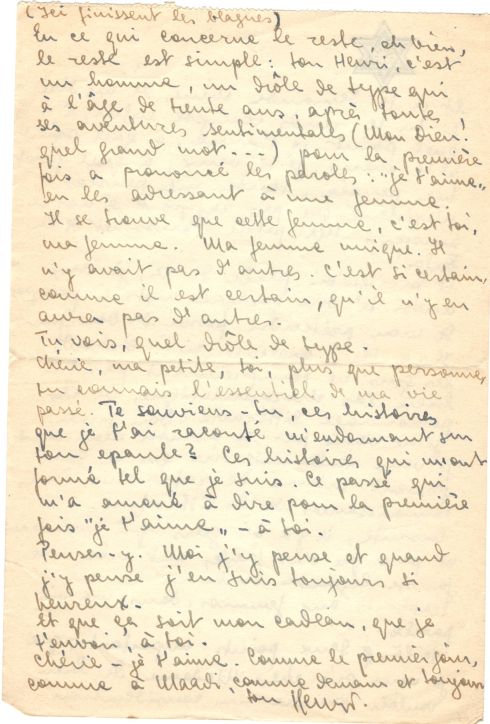 (Ici finissent les blagues)
En ce qui concerne le reste, eh bien,
le reste est simple: ton Henri, c'est
un homme, un drôle de type qui
à l'âge de trente ans, après toutes
ses aventures sentimentales (Mon Dieu!
quel grand mot...) pour la première
fois a prononcé les paroles: "je t'aime"
en les adressant à une femme.
Il se trouve que cette femme, c'est toi,
ma femme. Ma femme unique. Il
n'y avait pas d'autres. C'est si certain,
comme il est certain, qu'il n'y en
aura pas d'autres.
Tu vois, quel drôle de type.
Chérie, ma petite, toi, plus que personne,
tu connais l'essentiel de ma vie
passé. Te souviens-tu, ces histoires
que je t'ai raconté m'endormant sur
ton epaule? Ces histoires qui m'ont
formé tel que je suis. Ce passé qui
m'a amené à dire pour la première
fois "je t'aime" - à toi.
Penses-y. Moi j'y pense et quand
j'y pense j'en suis toujours si
heureux.
Et que ça soit mon cadeau, que je
t'envoie, à toi.
Chérie - je t'aime. Comme le premier jour,
comme à Maadi, comme demain et toujours
ton Henri.